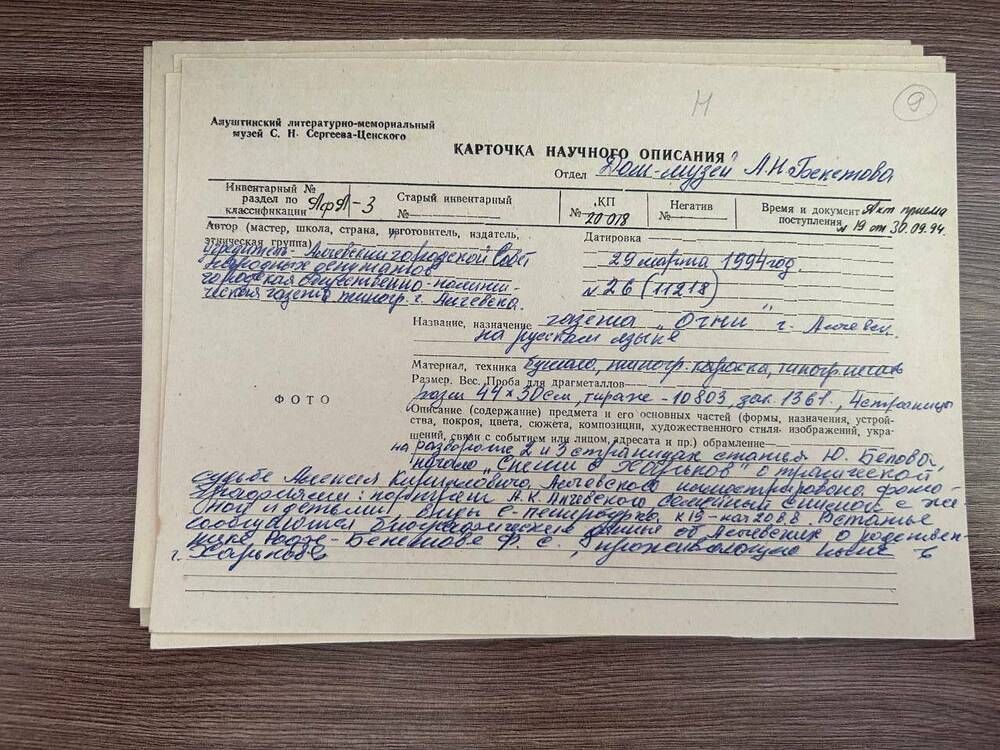 Н
9
Алуштинский литературно-мемориальный
музей С. Н. Сергеева-Ценского
КАРТОЧКА НАУЧНОГО ОПИСАНИЯ
Отдел Дом-музей А.Н. Бекетова
Инвентарный №
раздел по
классификации АфА-3
Старый инвентарный
№
КП
№ 20018
Негатив
№
Время и документ Акт приема
поступления № 19 от 30.09.94.
Автор (мастер, школа, страна, изготовитель, издатель,
этническая группа)
учредитель - Алчевский городской Совет
народных депутатов
городская общественно-полити-
ческая газета типогр. г. Алчевска.
Датировка
29 марта 1994 год.
№ 26 (11218)
Название, назначение газета „Огни" г. Алчевск.
на русском языке
Материал, техника бумага, типогр. краска, типогр. печать
Размер. Вес. Проба для драгметаллов
разм 44×30 см, тираж - 10803, зак. 1361, 4 страницы
ФОТО
Описание (содержание) предмета и его основных частей (формы, назначения, устрой-
ства, покроя, цвета, сюжета, композиции, художественного стиля изображений, укра-
шений, связи с событием или лицом, адресата и пр.) обрамление
на развороте 2 и 3 страницах статья Ю. Белова,
начало „Спеши в Харьков" о трагической
судьбе Алексея Кирилловича Алчевского иллюстрирована фото-
графиями: портрет А.К. Алчевского семейный снимок с же-
ной и детьми виды С-петербурга к 19 - нач 20 в.в. В статье
сообщаются биографические данные об Алчевских, о родствен-
нике Ф. С., проживающую ныне в
г. Харькове